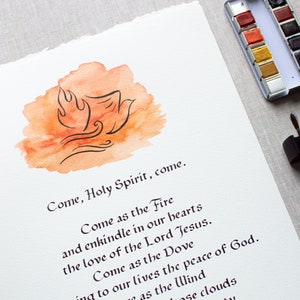 Come, Holy Spirit, come.
Come as the Fire
and enkindle in our hearts
the love of the Lord Jesus.
Come as the Dove
to our lives the peace of God.
as the Wind
clouds